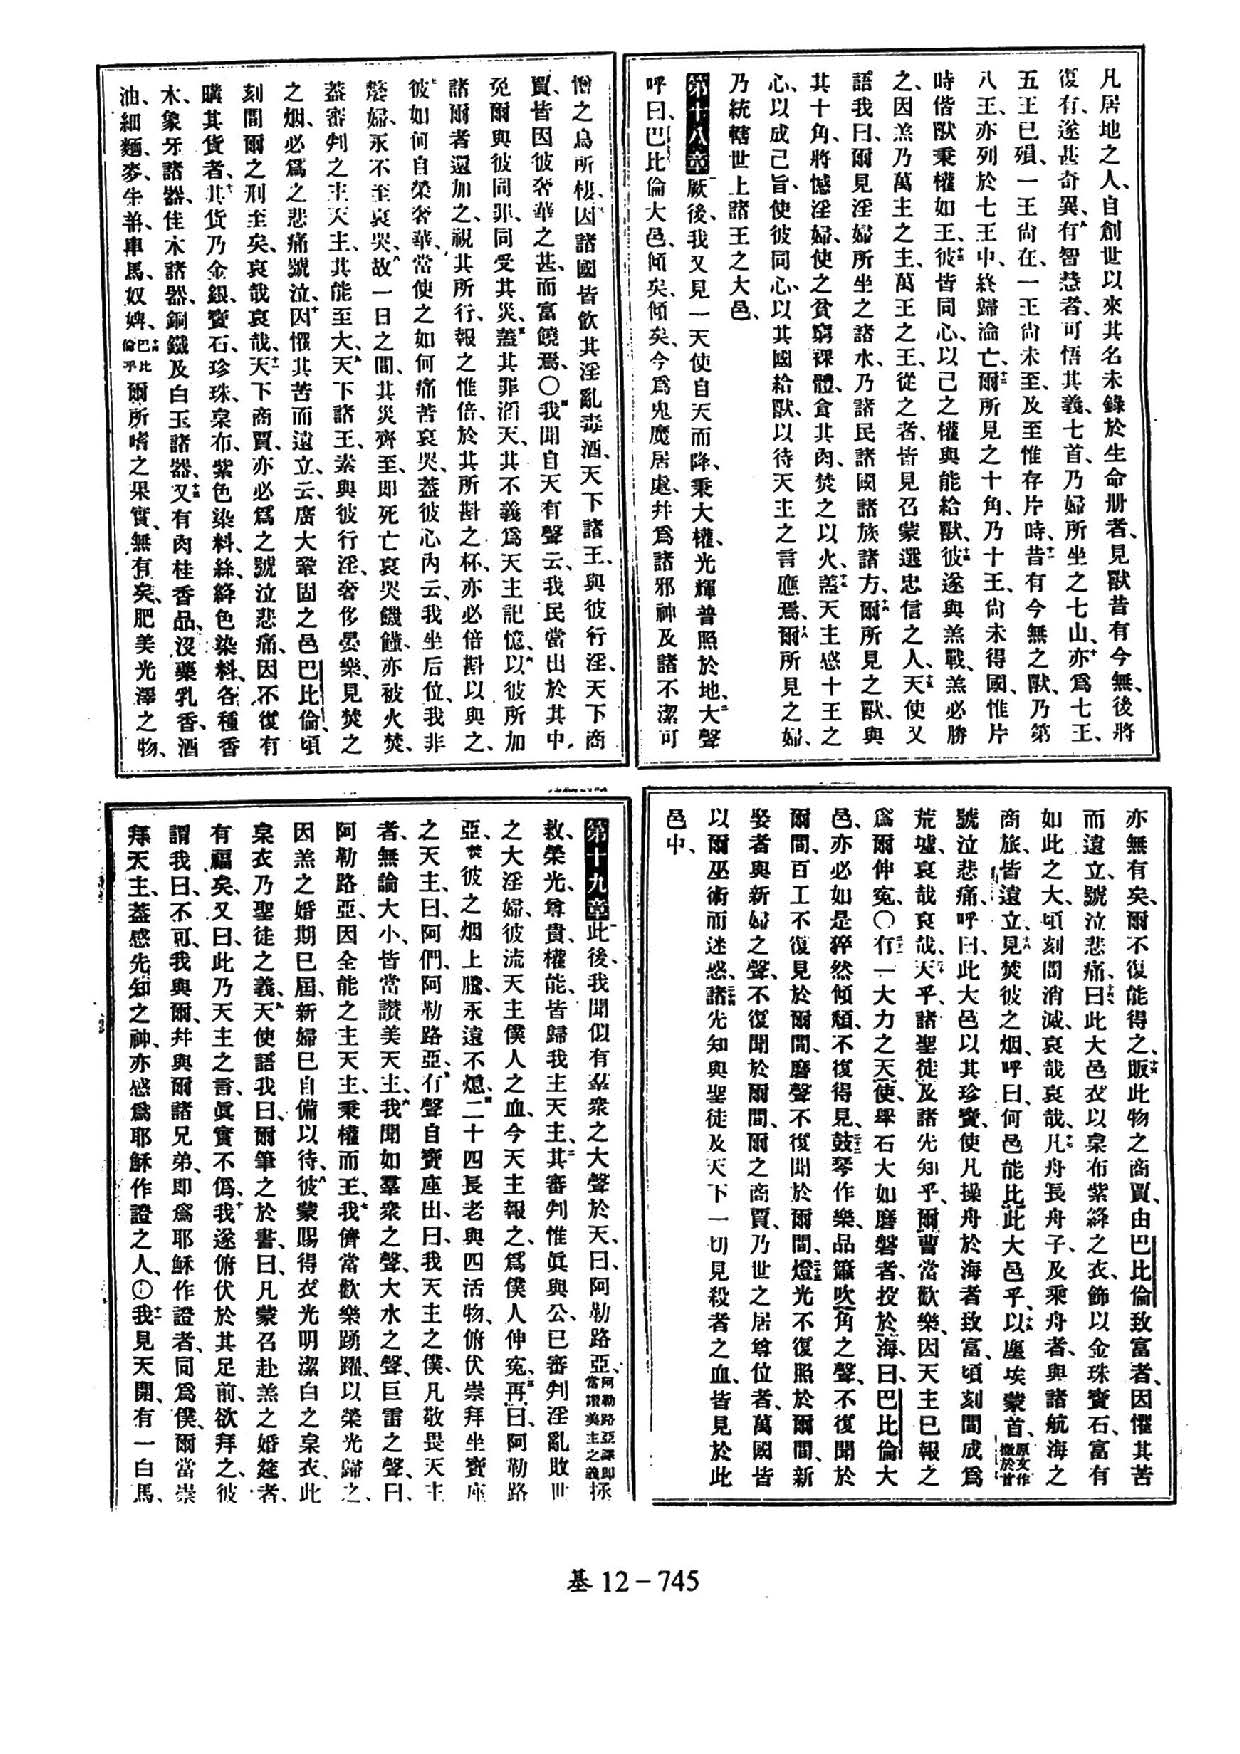 凡居地之人、自創世以來其名未錄於生命册者、見獸昔有今無、後將
復有、遂甚奇異、九有智慧者、可悟其義、七首、乃婦所坐之七山、十亦爲七王、
五王已殞、一王尙在、一王尙未至、及至惟存片時、十一昔有今無之獸、乃第
八王、亦列於七王中、終歸淪亡、十二爾所見之十角、乃十王、尙未得國、惟片
時偕獸秉權如王、十三彼皆同心、以己之權與能給獸、十四彼遂與羔戰、羔必勝
之、因羔乃萬主之主、萬王之王、從之者、皆見召蒙選忠信之人、十五天使又
語我曰、爾見淫婦所坐之諸水、乃諸民諸國諸族諸方、十六爾所見之獸、與
其十角、將憾淫婦、使之貧窮裸體、食其肉、焚之以火、十七蓋天主感十王之
心、以成己旨、使彼同心、以其國給獸、以待天主之言應焉、十八爾所見之婦、
乃統轄世上諸王之大邑、
第十八章 一厥後、我又見一天使自天而降、秉大權、光輝普照於地、二大聲
呼曰、巴比倫大邑、傾矣、傾矣、今爲鬼魔居處、幷爲諸邪神及諸不潔可
憎之鳥所棲、三因諸國皆飮其淫亂毒酒、天下諸王、與彼行淫、天下商
賈、皆因彼奢華之甚、而富饒焉、〇四我聞自天有聲云、我民當出於其中、
免爾與彼同罪、同受其災、五蓋其罪滔天、其不義爲天主記憶、六以彼所加
諸爾者還加之、視其所行、報之惟倍、於其所斟之杯、亦必倍斟以與之、
七彼如何自榮奢華、當使之如何痛苦哀哭、蓋彼心內云、我坐后位、我非
嫠婦、永不至哀哭、八故一日之間、其災齊至、卽死亡哀哭饑饉、亦被火焚、
蓋審判之主天主、其能至大、九天下諸王、素與彼行淫、奢侈晏樂、見焚之
之烟、必爲之悲痛號泣、十因懼其苦而遠立、云、廣大鞏固之邑巴比倫、頃
刻間爾之刑至矣、哀哉哀哉、十一天下商賈、亦必爲之號泣悲痛、因不復有
購其貨者、十二其貨乃金銀、寶石、珍珠、枲布、紫色染料、絲、絳色染料、各種香
木、象牙諸器、佳木諸器、銅鐵及白玉諸器、十三又有肉桂香品、沒藥乳香、酒
油、細麵、麥、牛、羊、車、馬、奴、婢、十四巴比倫乎爾所嗜之果實、無有矣、肥美光澤之物、
亦無有矣、爾不復能得之、十五販此物之商賈、由巴比倫致富者、因懼其苦
而遠立、號泣悲痛、十六曰、此大邑衣以枲布紫絳之衣、飾以金珠寶石、富有
如此之大、頃刻間消滅、哀哉哀哉、十七凡舟長舟子、及乘舟者、與諸航海之
商旅、皆遠立、十八見焚彼之烟、呼曰、何邑能比此大邑乎、十九以塵埃蒙首、原文作撒於首
號泣悲痛、呼曰、此大邑以其珍寶、使凡操舟於海者致富、頃刻間成爲
荒墟、哀哉哀哉、二十天乎、諸聖徒及諸先知乎、爾曹當歡樂、因天主已報之
爲爾伸寃、〇二十一有一大力之天使、舉石大如磨磐者、投於海、曰、巴比倫大
邑、亦必如是猝然傾頹、不復得見、二十二鼓琴作樂、品簫吹角之聲、不復聞於
爾間、百工不復見於爾間、磨聲不復聞於爾間、二十三燈光不復照於爾間、新
娶者與新婦之聲、不復聞於爾間、爾之商賈、乃世之居尊位者、萬國皆
以爾巫術而迷惑、二十四諸先知與聖徒及天下一切見殺者之血、皆見於此
邑中、
第十九章 一此後、我聞似有羣衆之大聲於天、曰、阿勒路亞、阿勒路亞譯卽當讚美主之義拯
救、榮光、尊貴、權能、皆歸我主天主、二其審判惟眞與公、已審判淫亂敗世
之大淫婦、彼流天主僕人之血、今天主報之、爲僕人伸寃、三再曰、阿勒路
亞、焚彼之烟上騰、永遠不熄、四二十四長老與四活物、俯伏崇拜坐寶座
之天主、曰、阿們、阿勒路亞、五有聲自寶座出、曰、我天主之僕、凡敬畏天主
者、無論大小、皆當讚美天主、六我聞如羣衆之聲、大水之聲、巨雷之聲、曰、
阿勒路亞、因全能之主天主、秉權而王、七我儕當歡樂踴躍、以榮光歸之、
因羔之婚期已屆、新婦已自備以待、八彼蒙賜得衣光明潔白之枲衣、此
枲衣乃聖徒之義、九天使語我曰、爾筆之於書曰、凡蒙召赴羔之婚筵者、
有福矣、又曰、此乃天主之言、眞實不僞、十我遂俯伏於其足前、欲拜之、彼
謂我曰、不可、我與爾、幷與爾諸兄弟、卽爲耶穌作證者、同爲僕、爾當崇
拜天主、蓋感先知之神、亦感爲耶穌作證之人、〇十一我見天開、有一白馬、
基 12－745